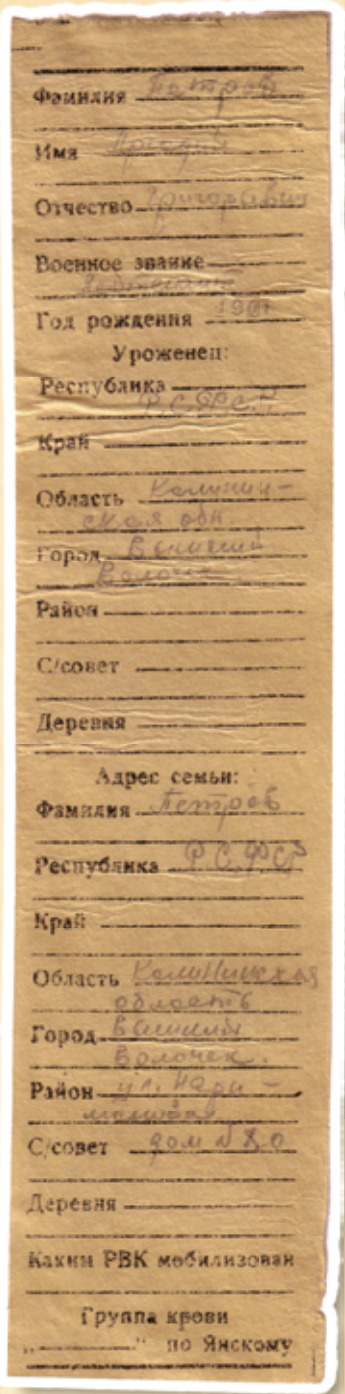 Фамилия Петров
Имя
Отчество Григорьевич
Военное звание
Лейтенант
Год рождения
Уроженец:
Республика
Р.С.Ф.С.Р.
Край
Область Калинин-
ская обл.
Город Вышний
Волочек
Район
С/совет
Деревня
Адрес семьи:
Фамилия Петров
Республика Р.С.ФСР
Край
Область Калининская
область
Город Вышний
Волочек.
Район ул. Нари-
мановая
С/совет дом №
Деревня
Каким РВК мобилизован
Группа крови
„ " по Янскому